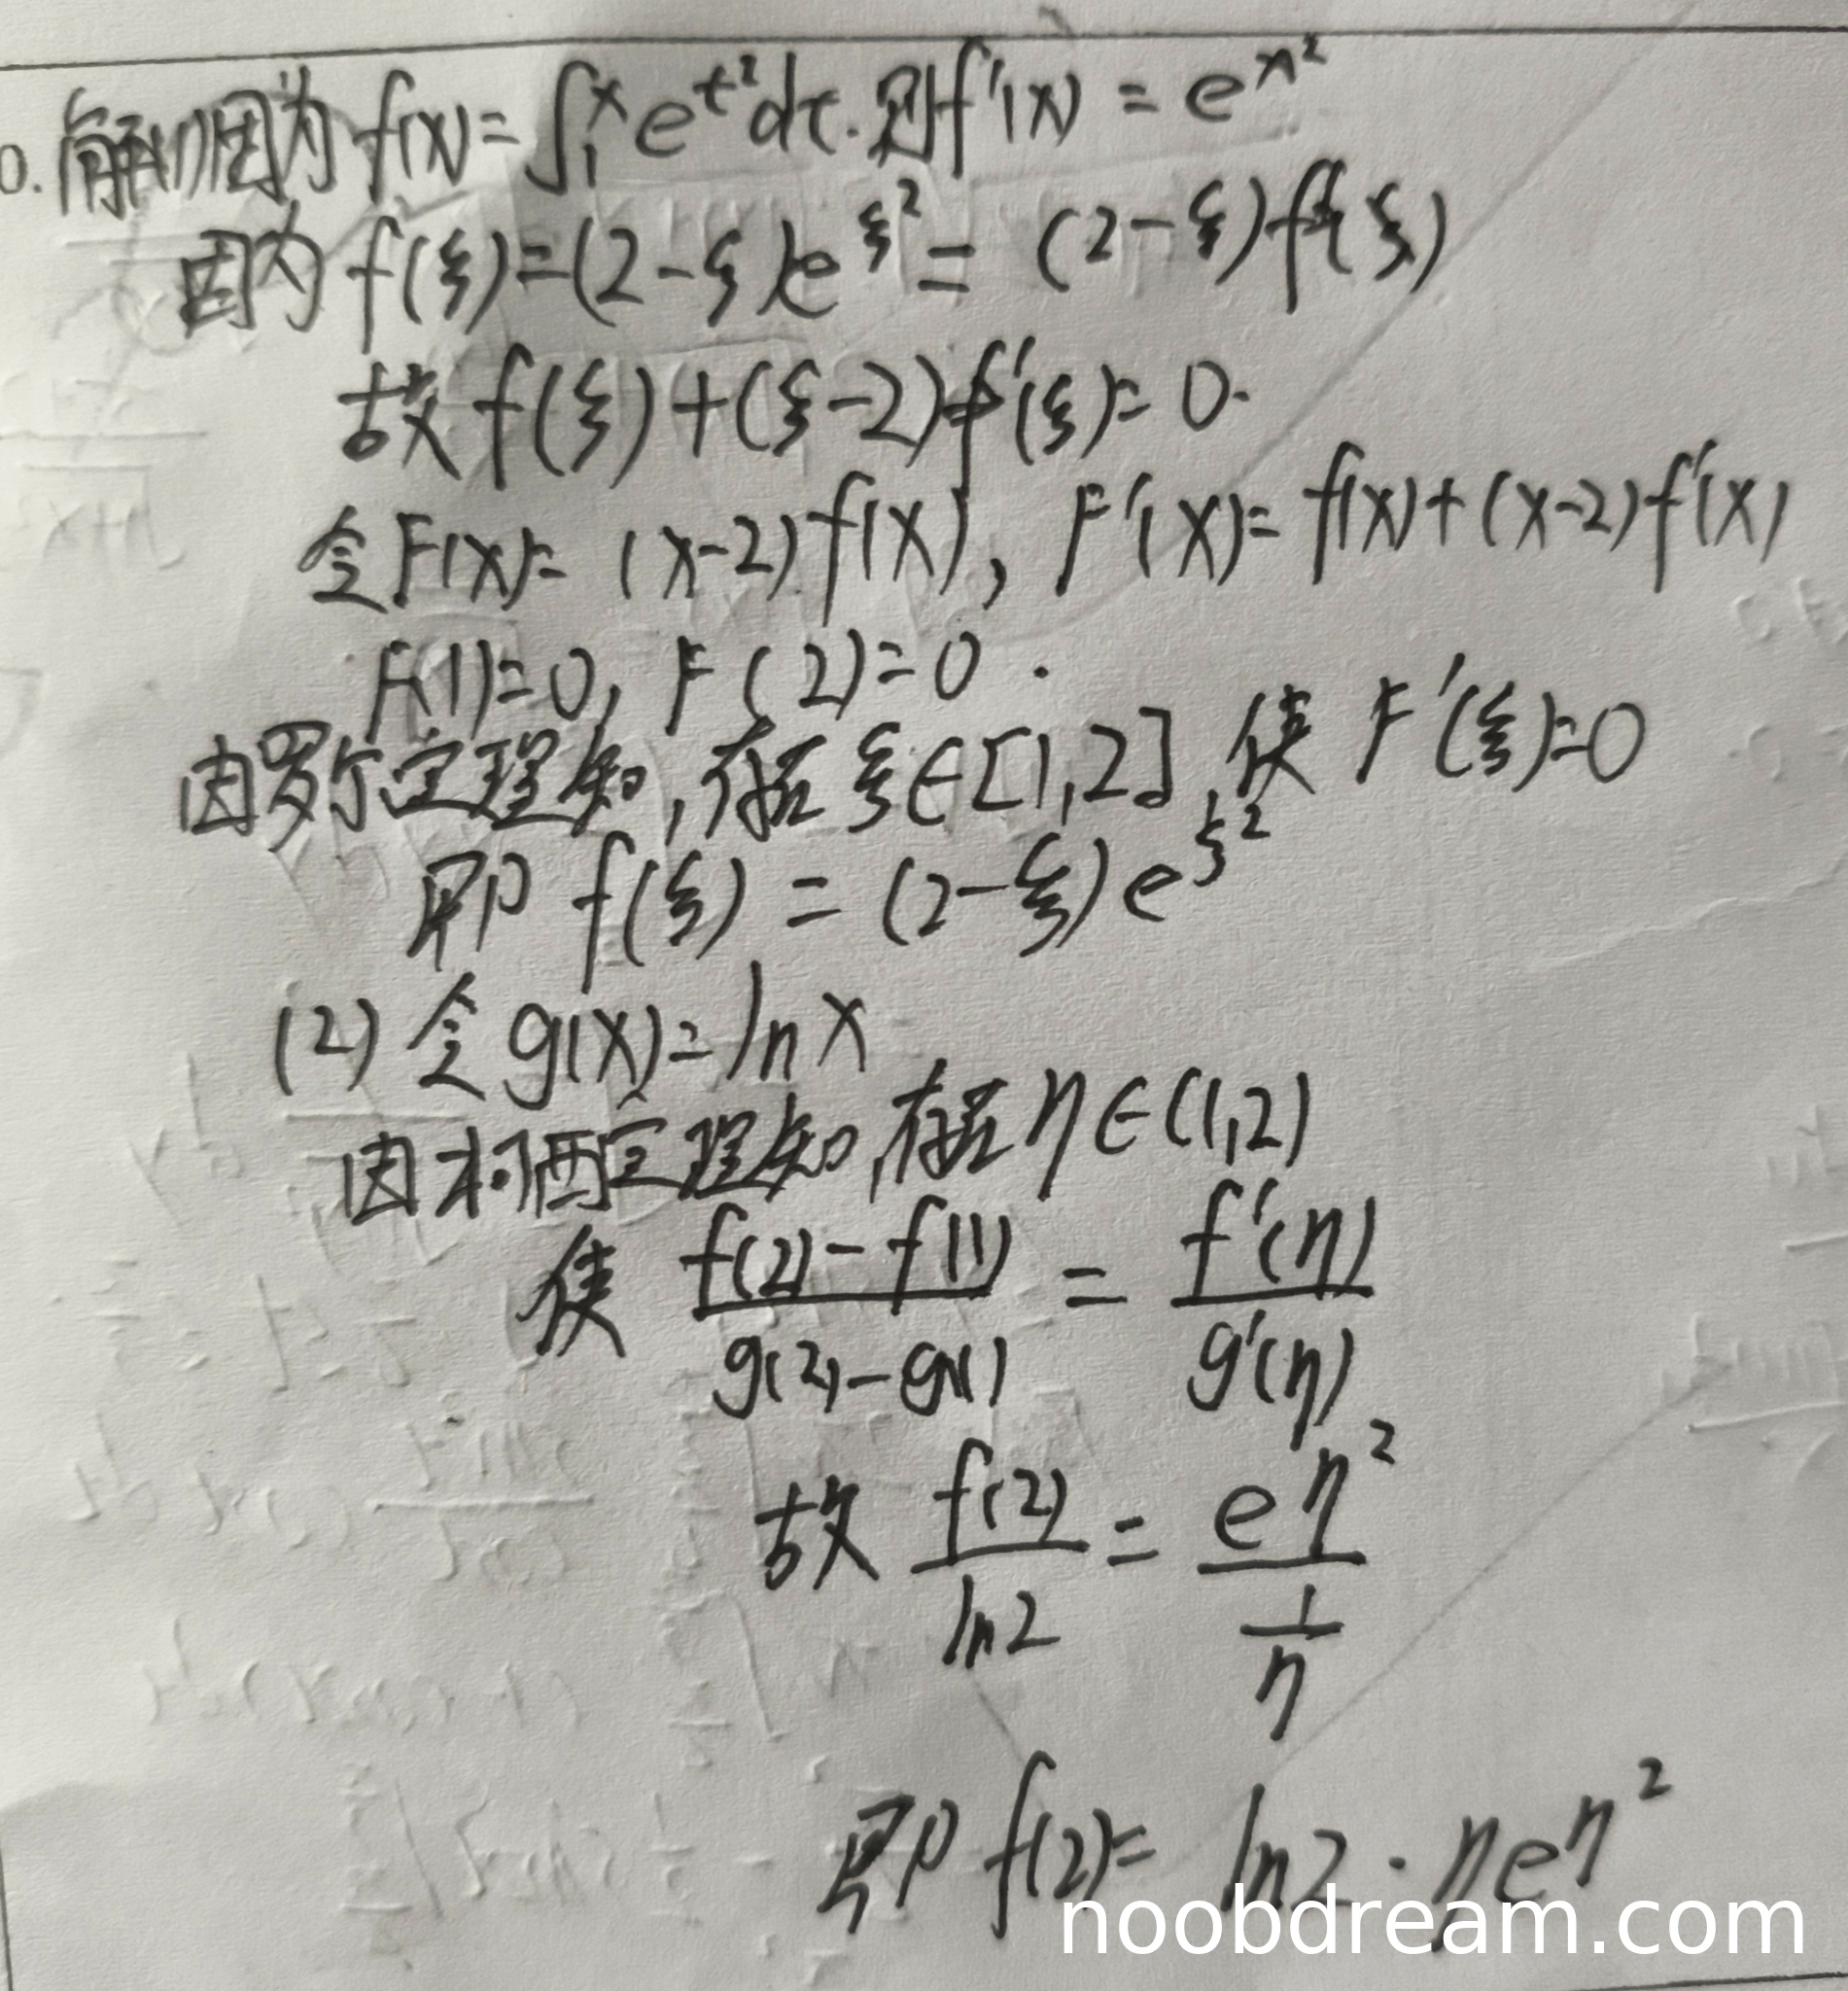 0. 解(1)因为 f(x)=∫₁ˣ e^{t²}dt. 则f'(x) = e^{x²}
因为 f(ξ)=(2-ξ)e^{ξ²} = (2-ξ)f'(ξ)
故 f(ξ)+(ξ-2)f'(ξ)=0.
令F(x)= (x-2)f(x), F'(x)= f(x)+(x-2)f'(x)
F(1)=0, F(2)=0.
由罗尔定理知,存在ξ∈[1,2],使 F'(ξ)=0
即 f(ξ) = (2-ξ)e^{ξ²}
(2)令g(x)=lnx
由柯西定理知,存在η∈(1,2)
使 \frac{f(2)-f(1)}{g(2)-g(1)} = \frac{f'(η)}{g'(η)}
故 \frac{f(2)}{ln2} = \frac{e^{η²}}{\frac{1}{η}}
即 f(2)= ln2·ηe^{η²}
noobdream.com